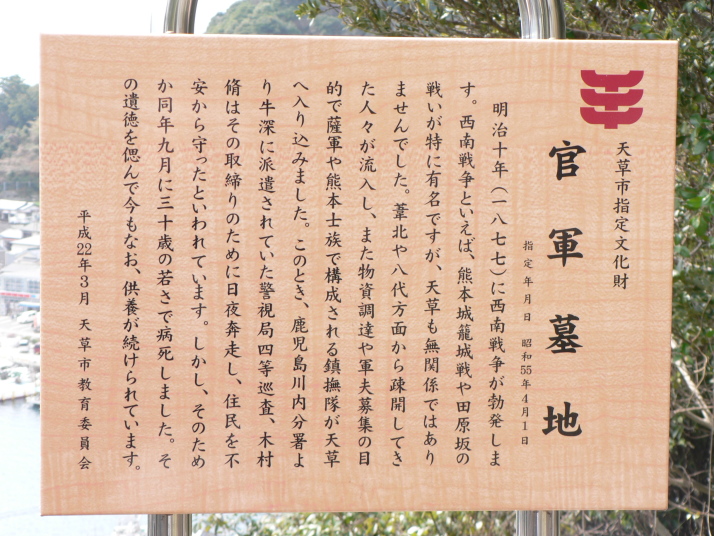 天草市指定文化財
官軍墓地
指定年月日 昭和55年4月1日
明治十年(一八七七)に西南戦争が勃発しま
す。西南戦争といえば、熊本城籠城戦や田原坂の
戦いが特に有名ですが、天草も無関係ではあり
ませんでした。葦北や八代方面から疎開してき
た人々が流入し、また物資調達や軍夫募集の目
的で薩軍や熊本士族で構成される鎮撫隊が天草
へ入り込みました。このとき、鹿児島川内分署よ
り牛深に派遣されていた警視局四等巡査、木村
脩はその取締りのために日夜奔走し、住民を不
安から守ったといわれています。しかし、そのため
か同年九月に三十歳の若さで病死しました。そ
の遺徳を偲んで今もなお、供養が続けられています。
平成22年3月 天草市教育委員会